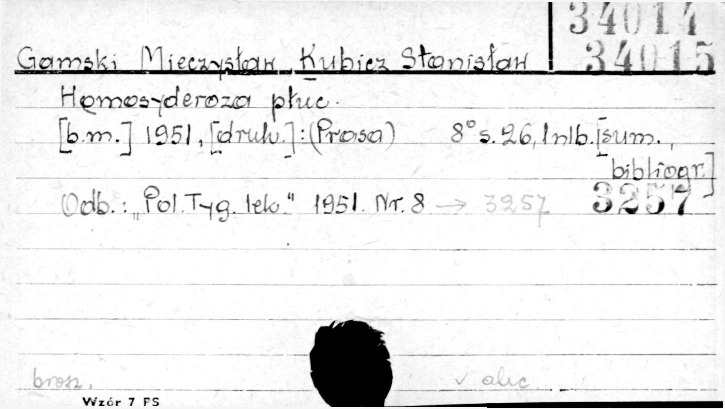 34014
34015
Gamski Mieczysław, Kubicz Stanisław
Hemosyderoza płuc.
[b.m.] 1951, [druk.]: (Prasa) 8° s. 26, 1 nlb. [sum.,
bibliogr.]
Odb.: „Pol. Tyg. lek." 1951. Nr. 8 → 3257 3257
brosz. √ alic.
Wzór 7 PS